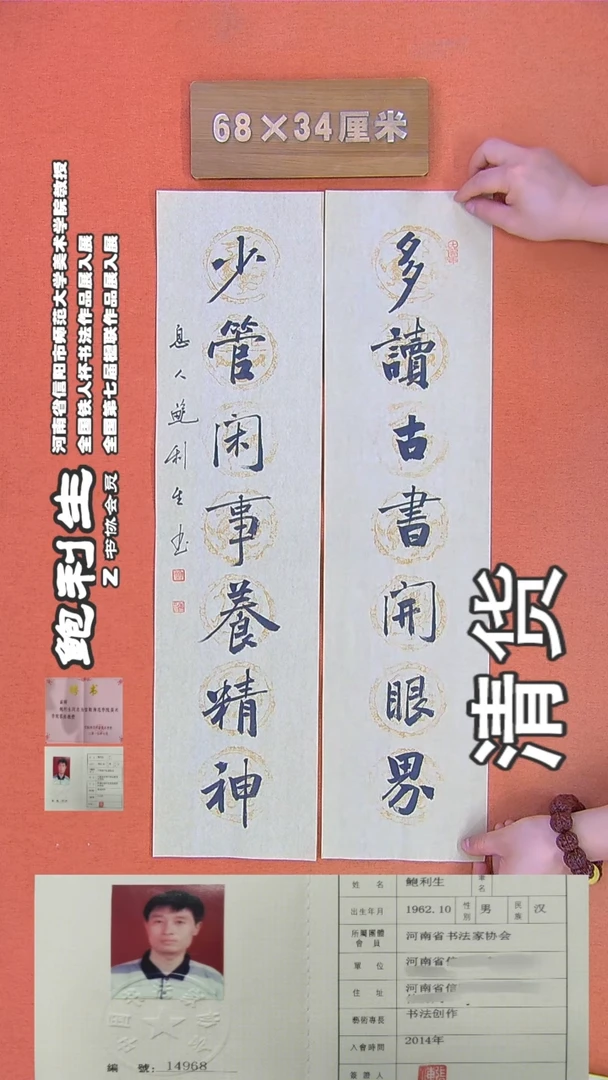 68×34厘米
多讀古書開眼界
少管闲事養精神
息人鲍利生书
河南省信阳市师范大学美术学院教授
全国铁人杯书法作品展入展
全国第七届楹联作品展入展
鲍利生
Z书协会员
清货
姓名 鲍利生
筆名
出生年月 1962.10 性别 男 民族 汉
所屬團體會員 河南省书法家协会
單位 河南省信
住址 河南省信
藝術專長 书法创作
入會時間 2014年
簽證人
編號：14968